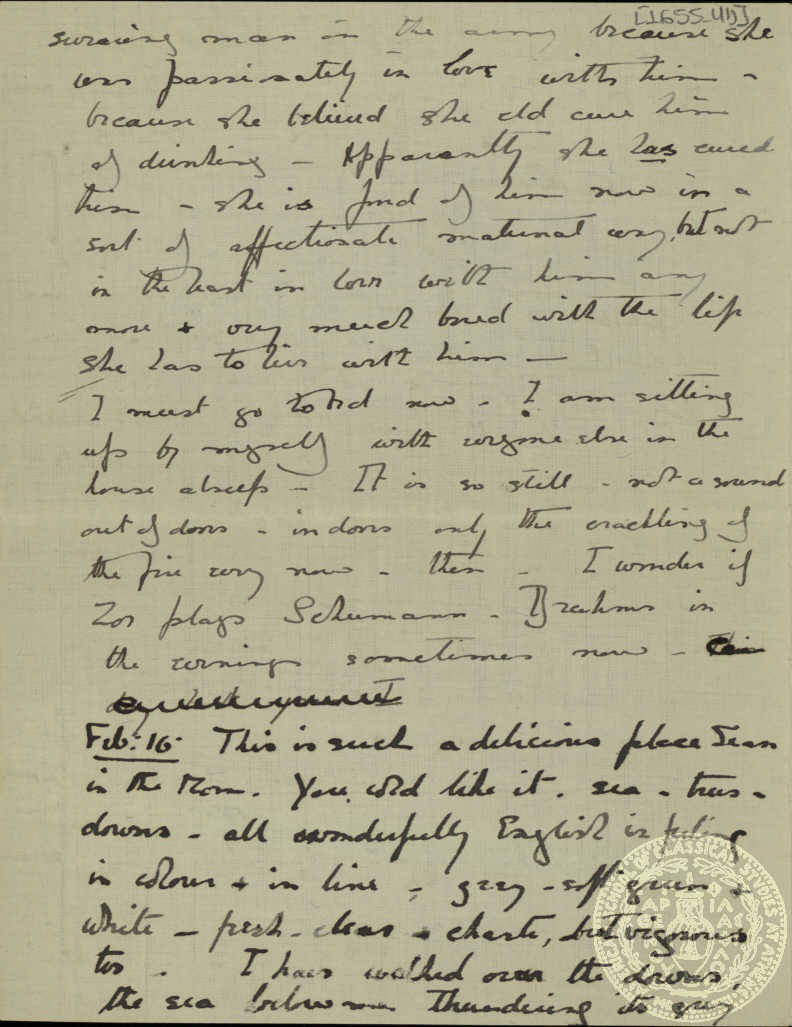 [1655-4D]
swearing man in the army because she
was passionately in love with him -
because she believed she cld cure him
of drinking - Apparently she has cured
him - she is fond of him now in a
sort of affectionate maternal way, but not
in the least in love with him any
more + very much bored with the life
she has to live with him -
I must go to bed now - I am sitting
up by myself with everyone else in the
house asleep - It is so still - not a sound
out of doors - indoors only the crackling of
the fire every now - then - I wonder if
Zos plays Schumann - Brahms in
the evenings sometimes now -
Feb: 16. This is such a delicious place
in the . You wld like it. sea - trees -
downs - all wonderfully English in feeling
in colour + in line - grey - soft green +
white - fresh - clear - chaste, but vigorous
too - I have walked over the downs,
the sea below me thundering its grey